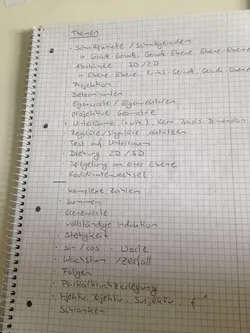 Themen
· Schnittpunkte / Schnittgeraden
in Gerade-Gerade, Gerade-Ebene, Ebene-Ebene
· Abstände 3D/2D
in Ebene-Ebene, Punkt-Gerade, Gerade-Ebene
· Projektion
· Determinanten
· Eigenwerte / Eigenvektoren
· projektive Geometrie
· Unterräume Kern, Basis, Dimension
· Reguläre/Singuläre Matrizen
· Test auf Unterraum
· Drehung 2D/3D
· Spiegelung an einer Ebene
· Koordinatenwechsel
· Komplexe Zahlen
· Summen
· Grenzwerte
· vollständige Induktion
· Stetigkeit
· sin/cos - Werte
· Wachstum/Zerfall
· Folgen
· Partialbruchzerlegung
· Injektiv, Bijektiv, Surjektiv
· Schranken